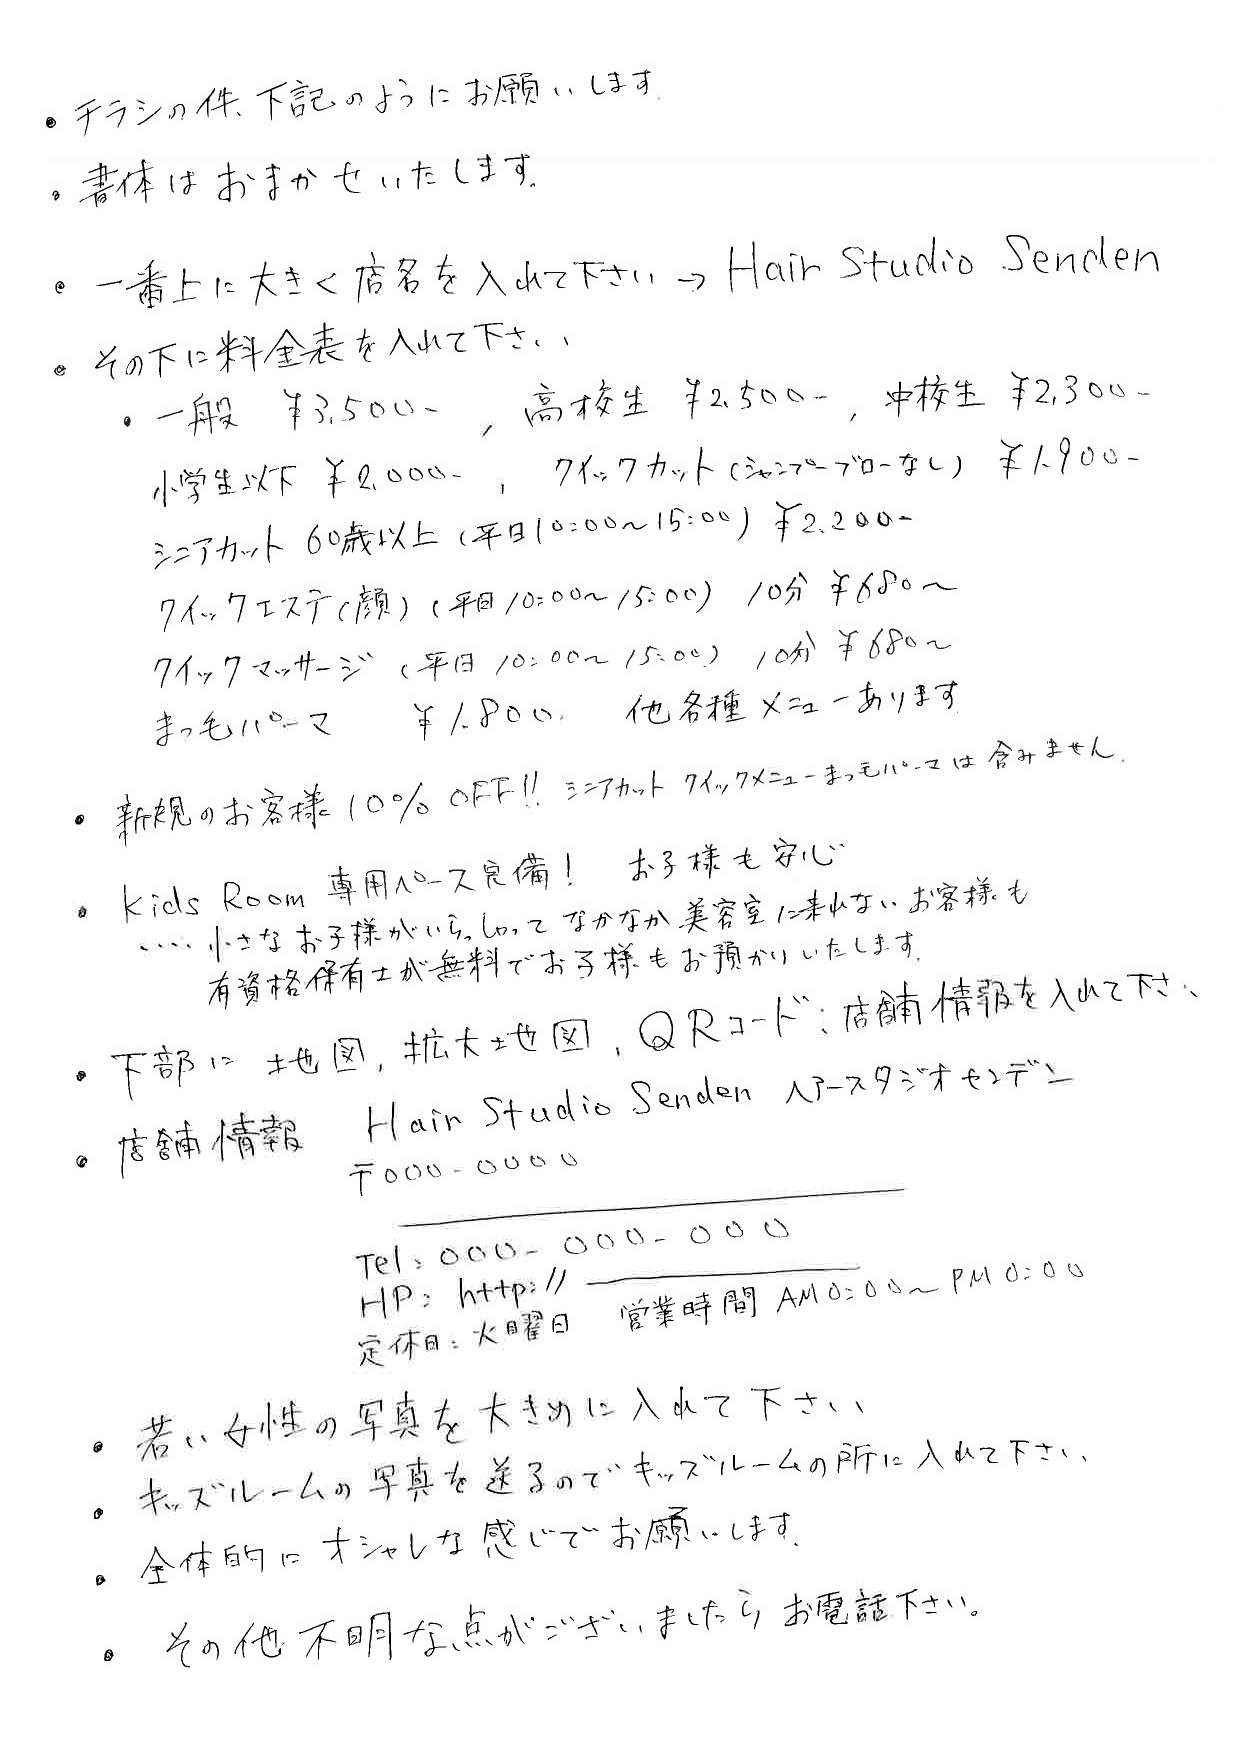 ・チラシの件、下記のようにお願いします.
・書体はおまかせいたします.
・一番上に大きく店名を入れて下さい→Hair Studio Senden
・その下に料金表を入れて下さい
・一般 ¥3,500- , 高校生 ¥2,500- , 中校生 ¥2,300-
小学生以下 ¥2,000- , クイックカット(シャンプーブローなし) ¥1,900-
シニアカット 60歳以上(平日10:00~15:00) ¥2,200-
クイックエステ(顔)(平日10:00~15:00) 10分 ¥680~
クイックマッサージ(平日10:00~15:00) 10分 ¥680~
まつ毛パーマ ¥1,800. 他各種メニューあります
・新規のお客様10% OFF!! シニアカット クイックメニューまつ毛パーマは含みません.
・Kids Room 専用スペース完備! お子様も安心
....小さなお子様がいらっしゃってなかなか美容室に来れないお客様も
有資格保育士が無料でお子様もお預かりいたします.
・下部に地図, 拡大地図, QRコード、店舗情報を入れて下さい
・店舗情報 Hair Studio Senden ヘアースタジオセンデン
〒000-0000
Tel: 000-000-000
HP: http://
定休日: 火曜日 営業時間 AM0:00~PM0:00
・若い女性の写真を大きめに入れて下さい
・キッズルームの写真を送るのでキッズルームの所に入れて下さい.
・全体的にオシャレな感じでお願いします.
・その他不明な点がございましたらお電話下さい。